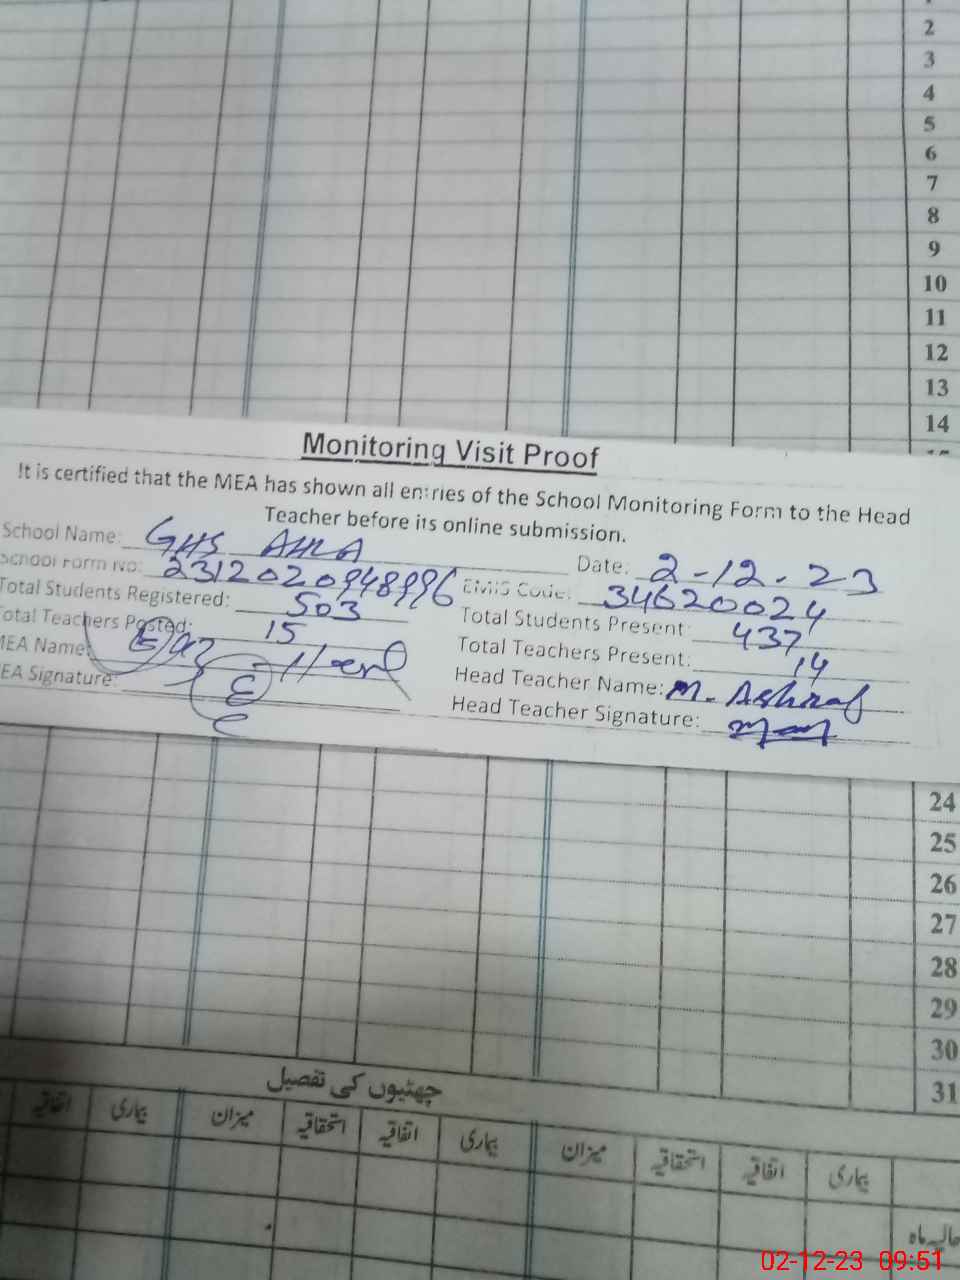 1
2
3
4
5
6
7
8
9
10
11
12
13
14
Monitoring Visit Proof
It is certified that the MEA has shown all entries of the School Monitoring Form to the Head
Teacher before its online submission.
School Name: GHS AHLA Date: 2-12-23
School Form No: 2312020948996 EMIS Code: 34620024
Total Students Registered: 503 Total Students Present: 437
Total Teachers Posted: 15 Total Teachers Present: 14
MEA Name: Head Teacher Name: M. Ashraf
MEA Signature: Head Teacher Signature:
24
25
26
27
28
29
30
31
چھٹیوں کی تفصیل
بیماری اتفاقیہ استحقاقیہ میزان بیماری اتفاقیہ استحقاقیہ میزان بیماری اتفاقیہ
حالیہ ماہ
02-12-23 09:51